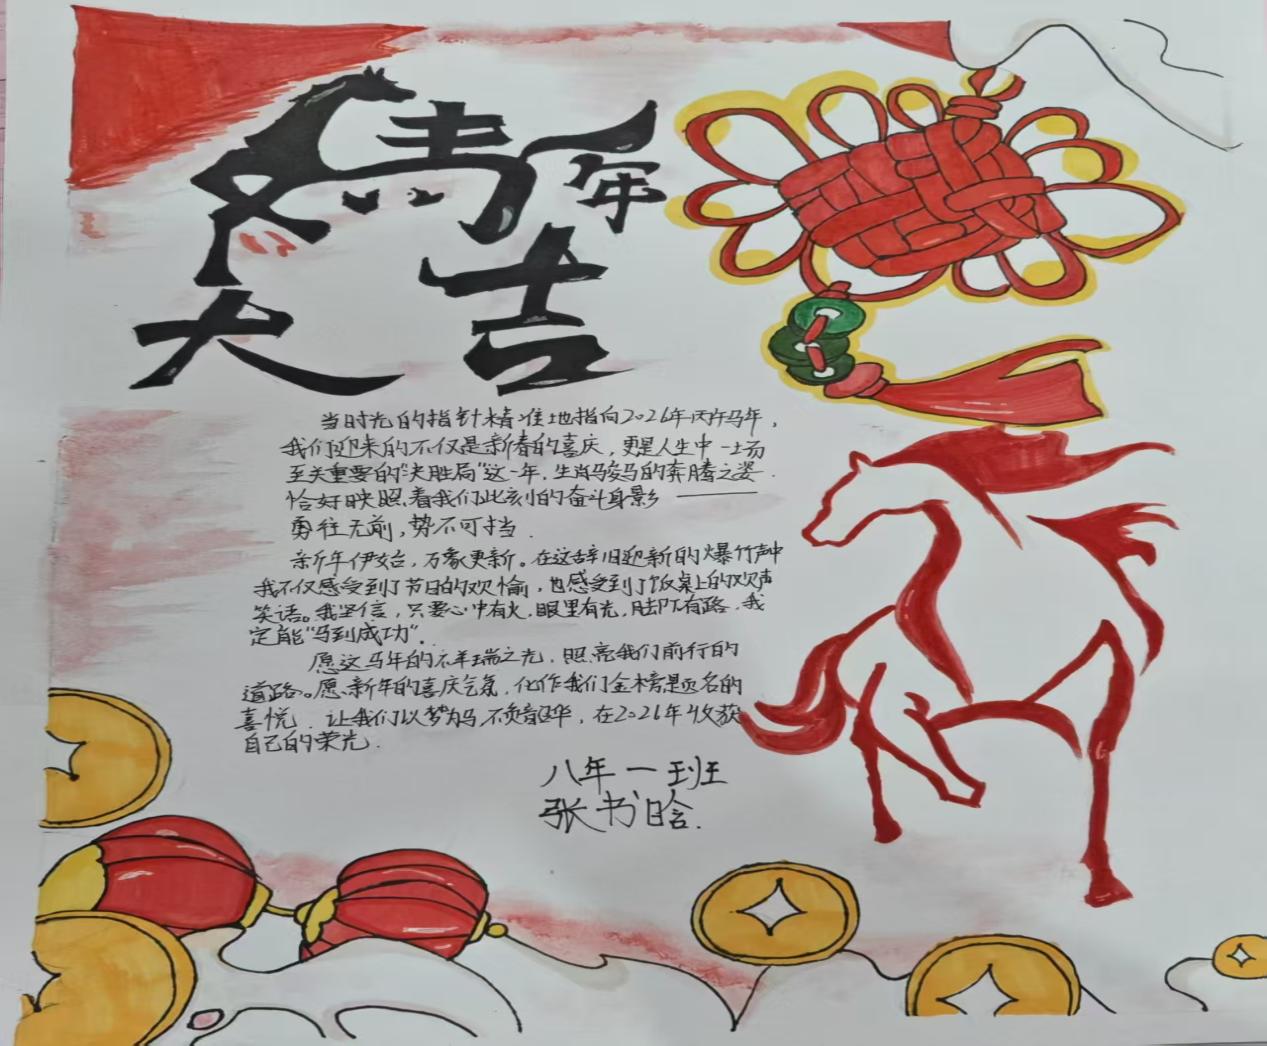 马年
大吉
当时光的指针精准地指向2026年丙午马年，
我们迎来的不仅是新春的喜庆，更是人生中一场
至关重要的“决胜局”这一年，生肖骏马的奔腾之姿．
恰好映照着我们此刻的奋斗身影——
勇往无前，势不可挡．
新年伊始，万象更新。在这辞旧迎新的爆竹声中
我不仅感受到了节日的欢愉，也感受到了饭桌上的欢声
笑语。我坚信，只要心中有火，眼里有光，脚下有路，我
定能“马到成功”．
愿这马年的祥瑞之光，照亮我们前行的
道路。愿新年的喜庆气氛，化作我们金榜题名的
喜悦．让我们以梦为马，不负韶华，在2026年收获
自己的荣光．
八年一班
张书晗．